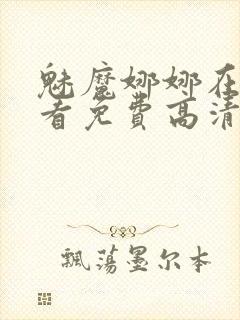 魅魔娜娜在
看免费高清
飘荡墨尔本